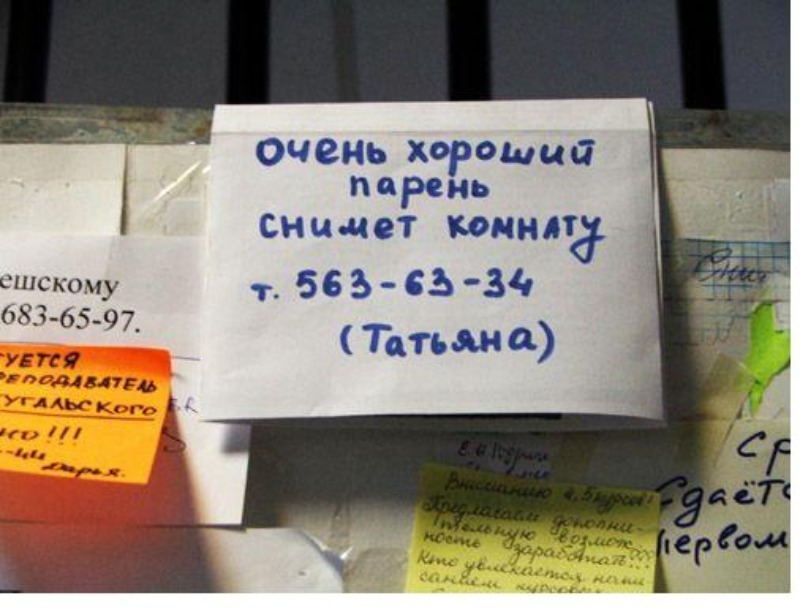 очень хороший
парень
снимет комнату
т. 563-63-34
(Татьяна)
ешскому
683-65-97.
УЕТСЯ
РЕПОДАВАТЕЛЬ
ТУГАЛЬСКОГО
НО!!!
Дарья.
Вниманию 4, 5 курсов!
Предлагаем дополни-
тельную возмож-
ность заработать!!!
Кто увлекается напи-
санием курсовых
Ср
Сдаёт
первом